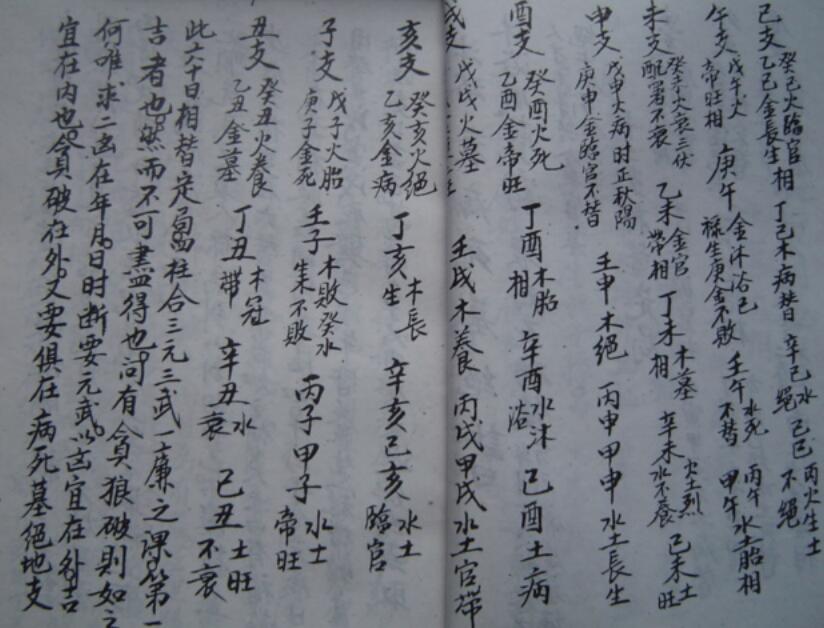 己支 癸己火臨官 乙己金長生相 丁己木病替 辛己水絕 己己丙火生土不絕
午支 戊午火帝旺相 庚午金沐浴己祿生庚金不敗 壬午水死不替 丙午甲午水土胎相
未支 癸未火衰三伏配署不衰 乙未金官帶相 丁未木墓相 辛未水不養火土烈 己未土旺
申支 戊申火病时正秋陽 庚申金臨官不替 壬申木絕 丙申甲申水土長生
酉支 癸酉火死 乙酉金帝旺 丁酉木胎相 辛酉水沐浴 己酉土病
戌支 戊戌火墓 壬戌木養 丙戌甲戌水土官帶
亥支 癸亥火絕 乙亥金病 丁亥木長生 辛亥己亥水土臨官
子支 戊子火胎 庚子金死 壬子木敗癸水生木不敗 丙子甲子水土帝旺
丑支 癸丑火養 乙丑金墓 丁丑木冠帶 辛丑水衰 己丑土旺不衰
此六十日相替定局柱合三元三武一廉之課第一
吉者也然而不可盡得也问有貪狼破則如之
何唯求二凶在年月日时断要元武以凶宜在外吉
宜在内也貪破在外又要俱在病死墓絕地支